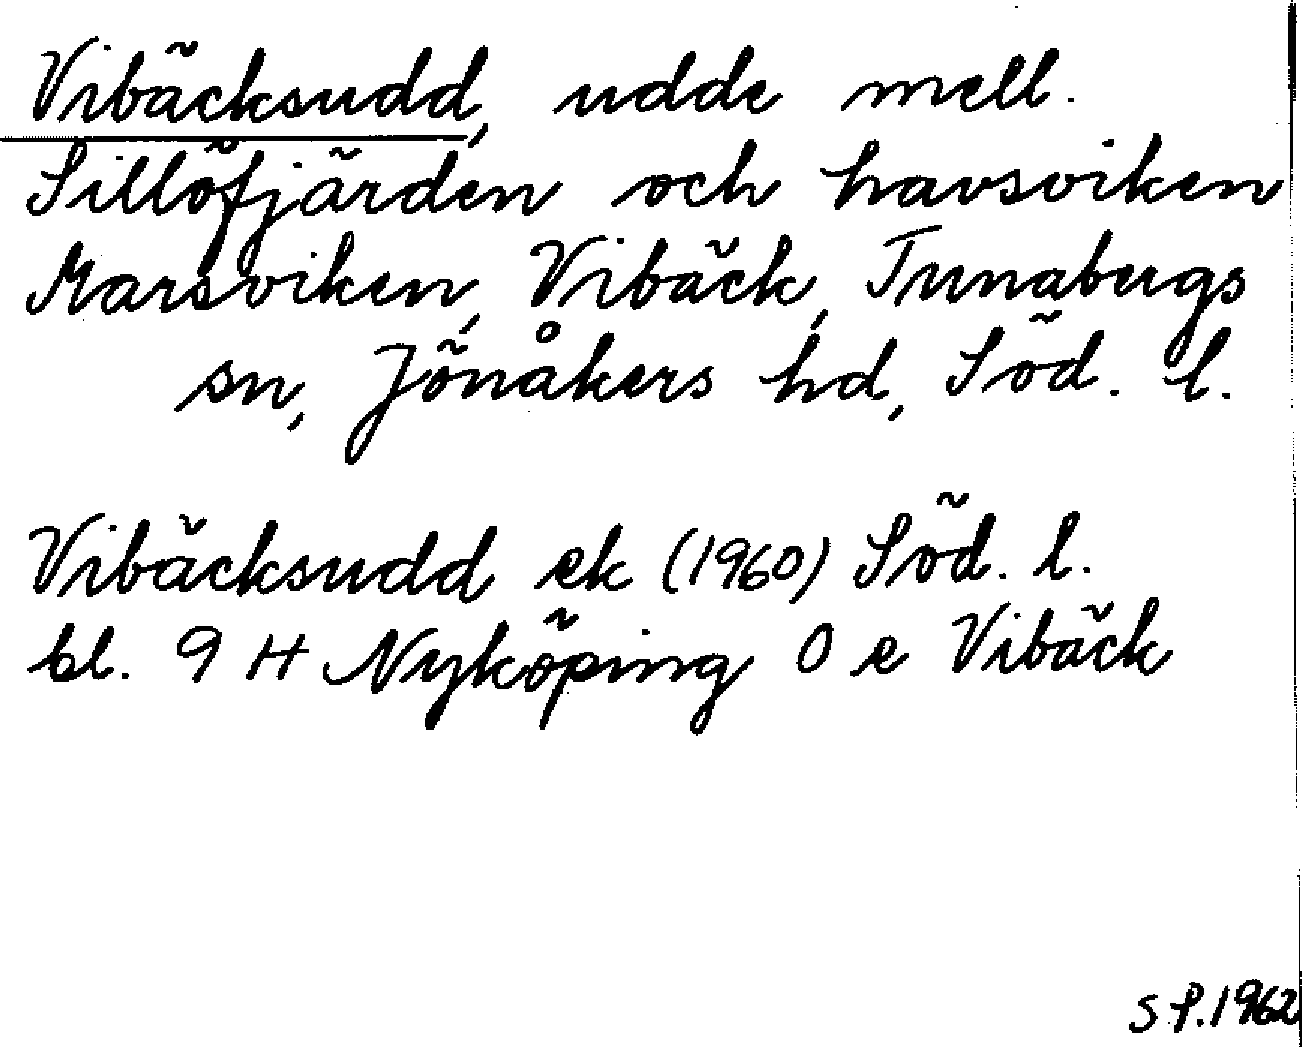 Vibäcksudd, udde mell.
Sillöfjärden och havsviken
Marsviken, Vibäck, Tunabergs
sn, Jönåkers hd, Söd. l.
Vibäcksudd ek (1960) Söd. l.
bl. 9 H Nyköping O e Vibäck
S P. 1962